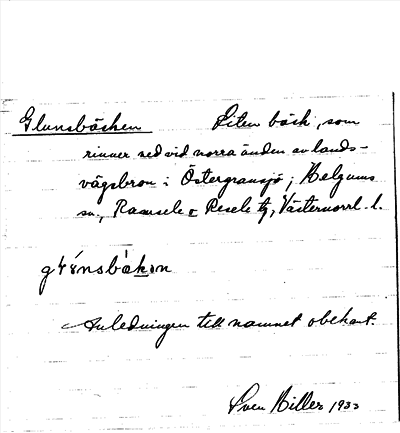 Glunsbäcken Liten bäck, som
rinner ned vid norra änden av lands-
vägsbron i Östergransjö i Helgums
sn., Ramsele o Resele tg, Västernorrl. l.
Anledningen till namnet obekant.
Sven Hiller 1933